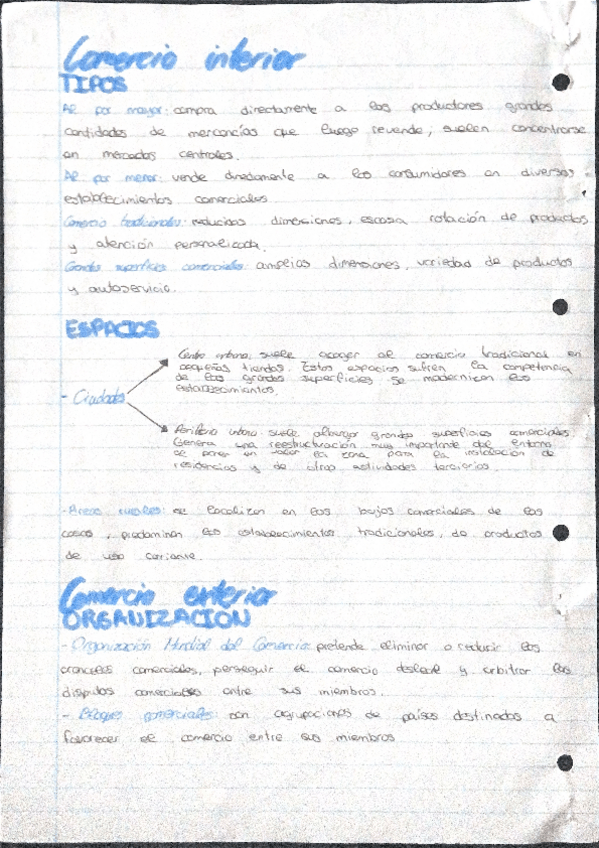 Comercio interior
TIPOS
Al por mayor: compra directamente a los productores grandes
cantidades de mercancías que luego revende, suelen concentrarse
en mercados centrales.
Al por menor: vende directamente a los consumidores en diversos
establecimientos comerciales
Comercio tradicional: reducidas dimensiones, escasa rotación de productos
y atención personalizada.
Grandes superficies comerciales: amplias dimensiones, variedad de productos
y autoservicio.
ESPACIOS
- Ciudades
Centro urbano: suele acoger al comercio tradicional en
pequeñas tiendas. Estos espacios sufren la competencia
de las grandes superficies se modernicen los
establecimientos.
Periferia urbana suele albergar grandes superficies comerciales
Genera una reestructuración muy importante del entorno
al poner en valor la zona para la instalación de
residencias y de otras actividades terciarias.
- Áreas rurales: se localizan en los bajos comerciales de las
casas, predominan los establecimientos tradicionales, de productos
de uso corriente.
Comercio exterior
ORGANIZACION
- Organización Mundial del Comercio: pretende eliminar o reducir los
aranceles comerciales, perseguir el comercio desleal y arbitrar las
disputas comerciales entre sus miembros.
- Bloques comerciales: son agrupaciones de países destinados a
favorecer el comercio entre sus miembros